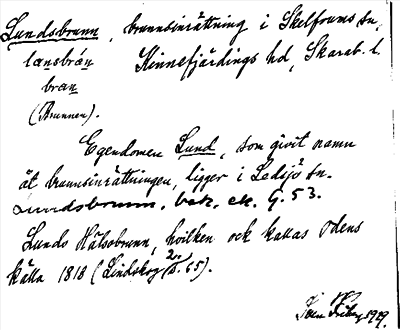 Lundsbrunn, brunnsinrättning i Skelfvums sn,
lansbrán Kinnefjärdings hd, Skarab. l.
bran
(Brunnen).
Egendomen Lund, som givit namn
åt brunnsinrättningen, ligger i Ledsjö sn.
Lundsbrunn. bek. ek. G. 53.
Lunds Hälsobrunn, hvilken ock kallas Odens
källa 1818 (Lindskog 2. s. 65).
1919.